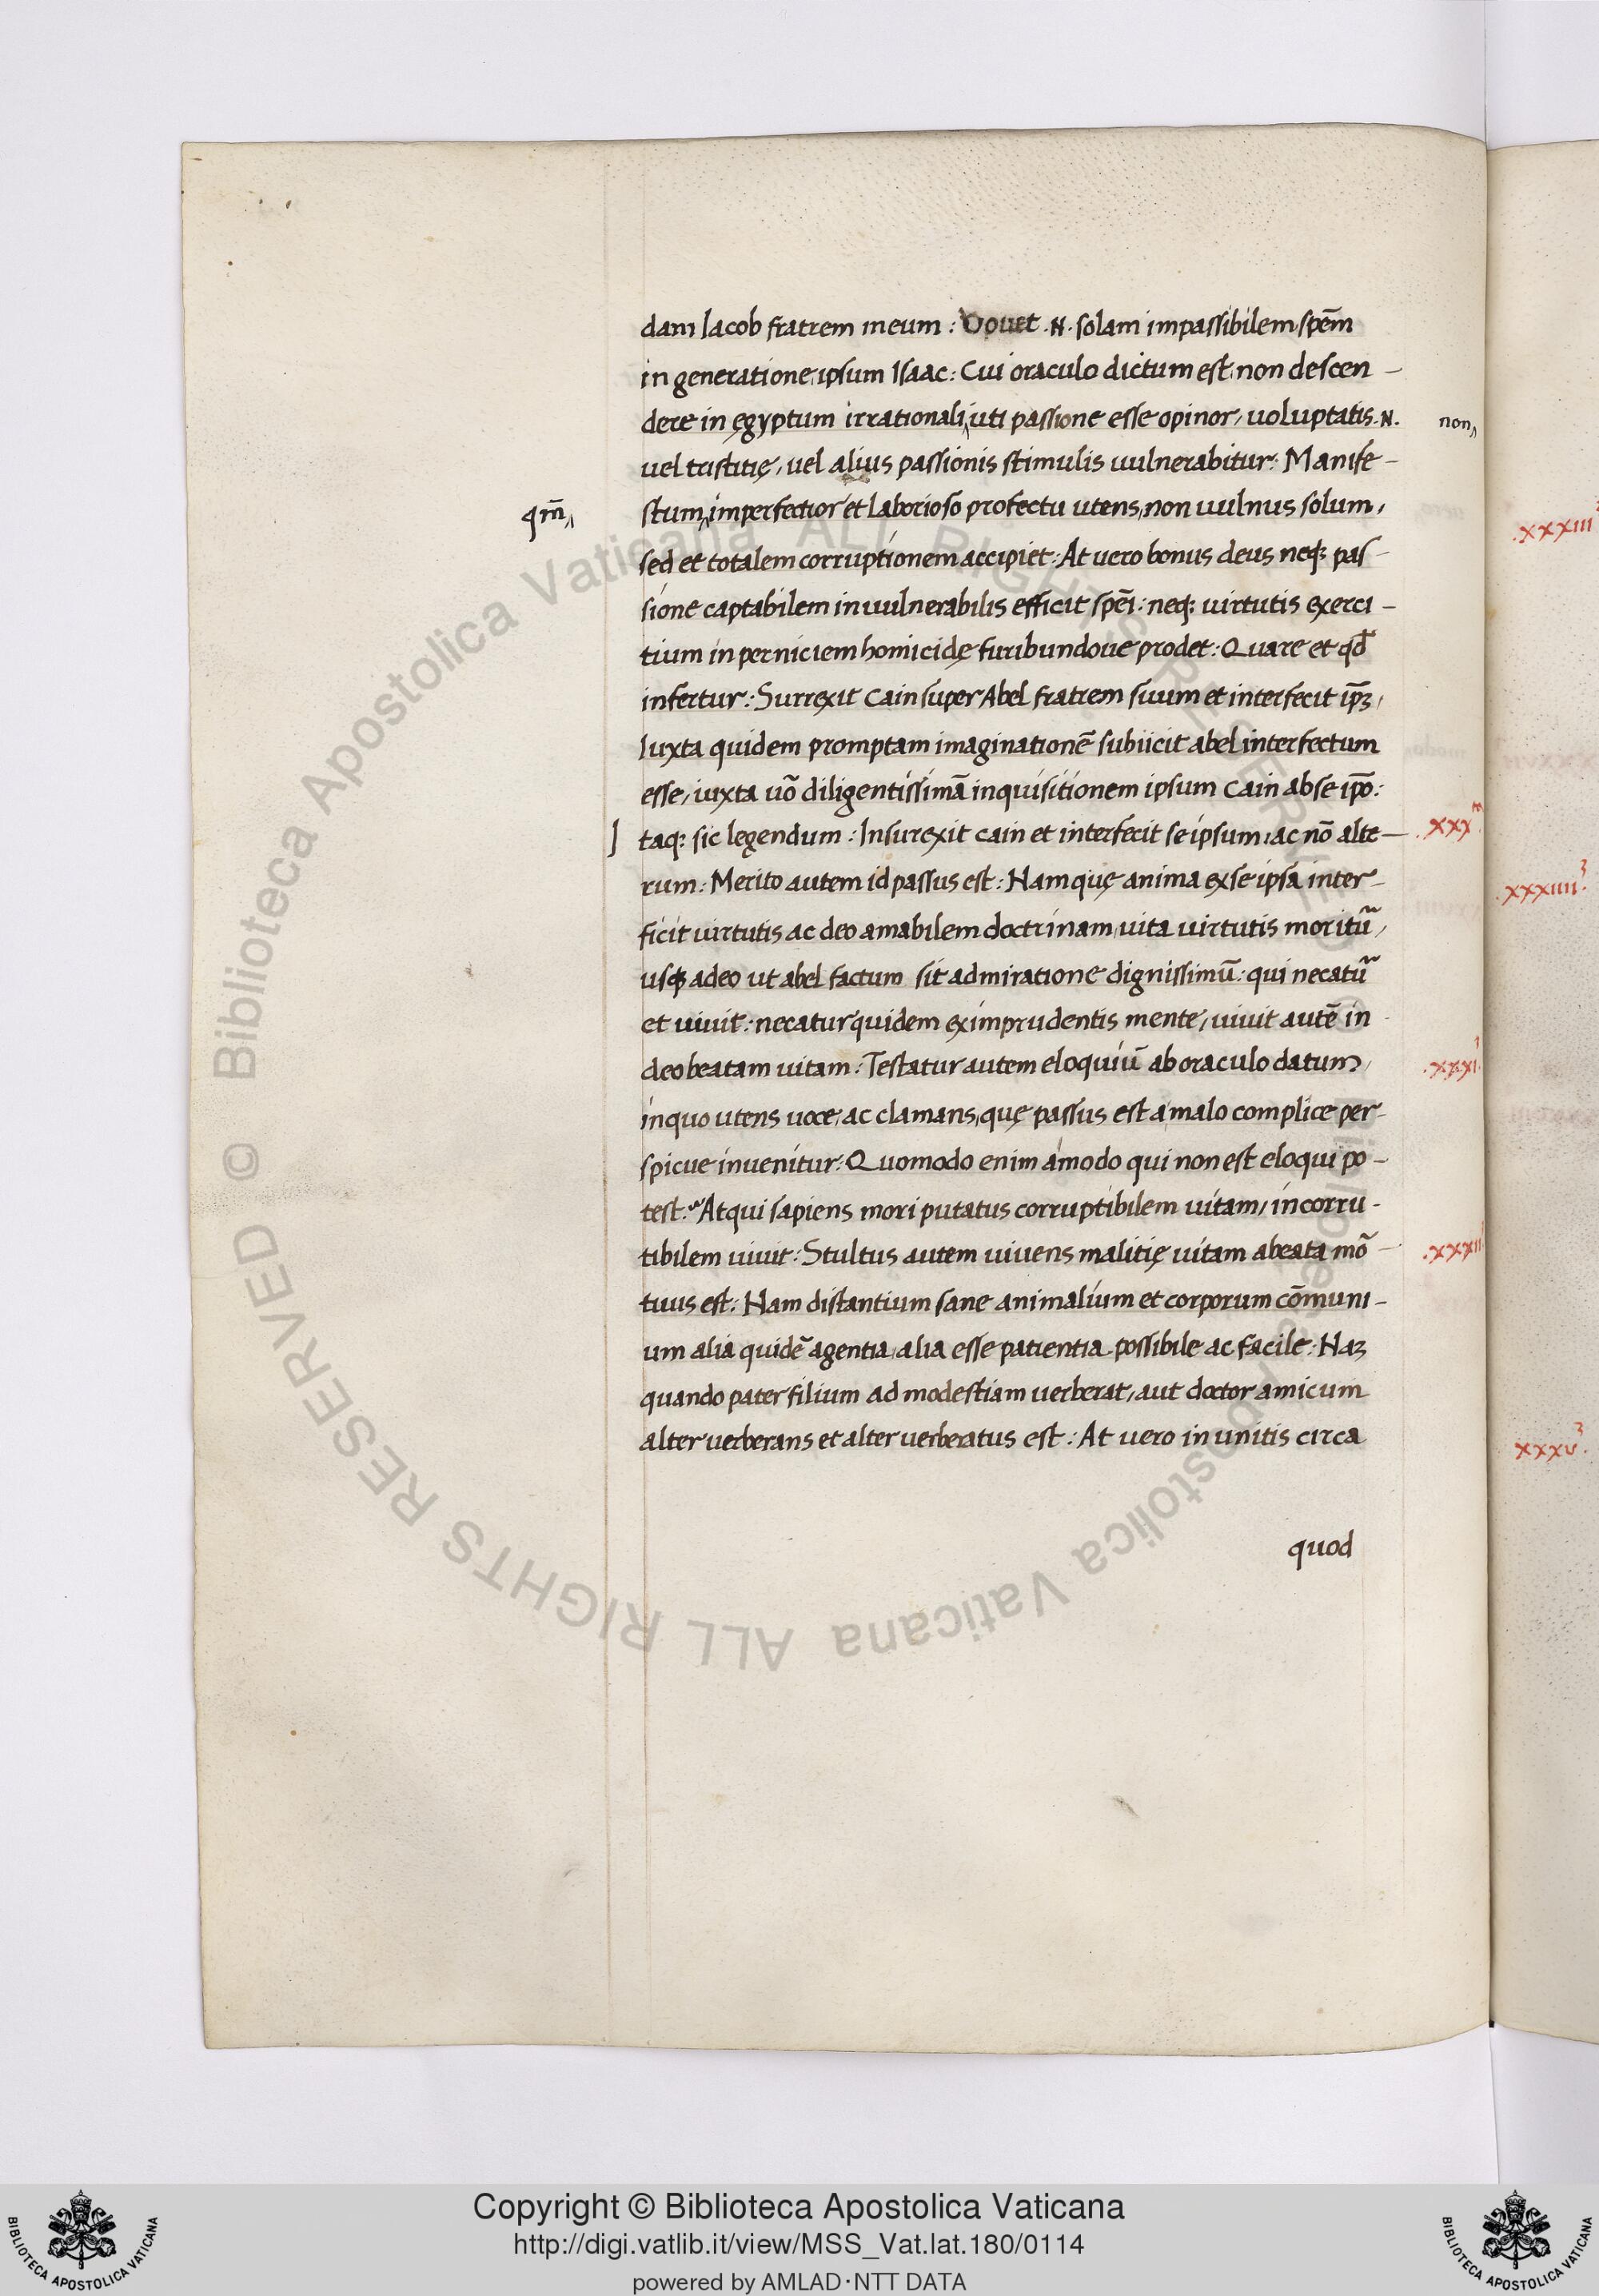 dam Iacob fratrem meum : Vouet .N. solam impassibilem spēm
in generatione, ipsum Isaac : Cui oraculo dictum est, non descen -
dere in ęgyptum irrationali, uti passione esse opinor, uoluptatis .N. non,
uel tristitię, uel alius passionis stimulis uulnerabitur : Manife -
qm̄, stum, imperfectior et laborioso profectu utens, non uulnus solum,
sed et totalem corruptionem accipiet : At uero bonus deus neq; pas -
sione captabilem inuulnerabilis efficit spēi : neq; uirtutis exerci -
tium in perniciem homicidę furibundoue prodet : Quare et qd̄
infertur : Surrexit Cain super Abel fratrem suum et interfecit ip̄ꝫ,
Iuxta quidem promptam imaginationē subiicit abel interfectum
esse, iuxta uō diligentissimā inquisitionem ipsum Cain ab se ip̄o :
I taq; sic legendum : Insurexit Cain et interfecit se ipsum, ac nō alte - .xxx.
rum : Merito autem id passus est : Nam quę anima ex se ipsa inter -
ficit uirtutis ac deo amabilem doctrinam, uita uirtutis moritu᷑,
usq; adeo ut abel factum sit admiratione dignissimū : qui necatu᷑
et uiuit : necatur quidem ex imprudentis mente, uiuit autē in
deo beatam uitam : Testatur autem eloquiū ab oraculo datum, .xxxi.
in quo utens uoce, ac clamans, quę passus est a malo complice per -
spicue inuenitur : Quomodo enim amodo qui non est eloqui po -
test : Atqui sapiens mori putatus corruptibilem uitam, incorru -
tibilem uiuit : Stultus autem uiuens malitię uitam a beata mō - .xxxii
tuus est : Nam distantium sane animalium et corporum cōmuni -
um alia quidē agentia, alia esse patientia possibile ac facile : Naꝫ
quando pater filium ad modestiam uerberat, aut doctor amicum
alter uerberans et alter uerberatus est : At uero in unitis circa
quod
.xxxiii
.xxxiiii.
xxxv.
© Biblioteca Apostolica Vaticana ALL RIGHTS RESERVED
© Biblioteca Apostolica Vaticana ALL RIGHTS RESERVED
Copyright © Biblioteca Apostolica Vaticana
http://digi.vatlib.it/view/MSS_Vat.lat.180/0114
powered by AMLAD·NTT DATA
BIBLIOTECA APOSTOLICA VATICANA
BIBLIOTECA APOSTOLICA VATICANA